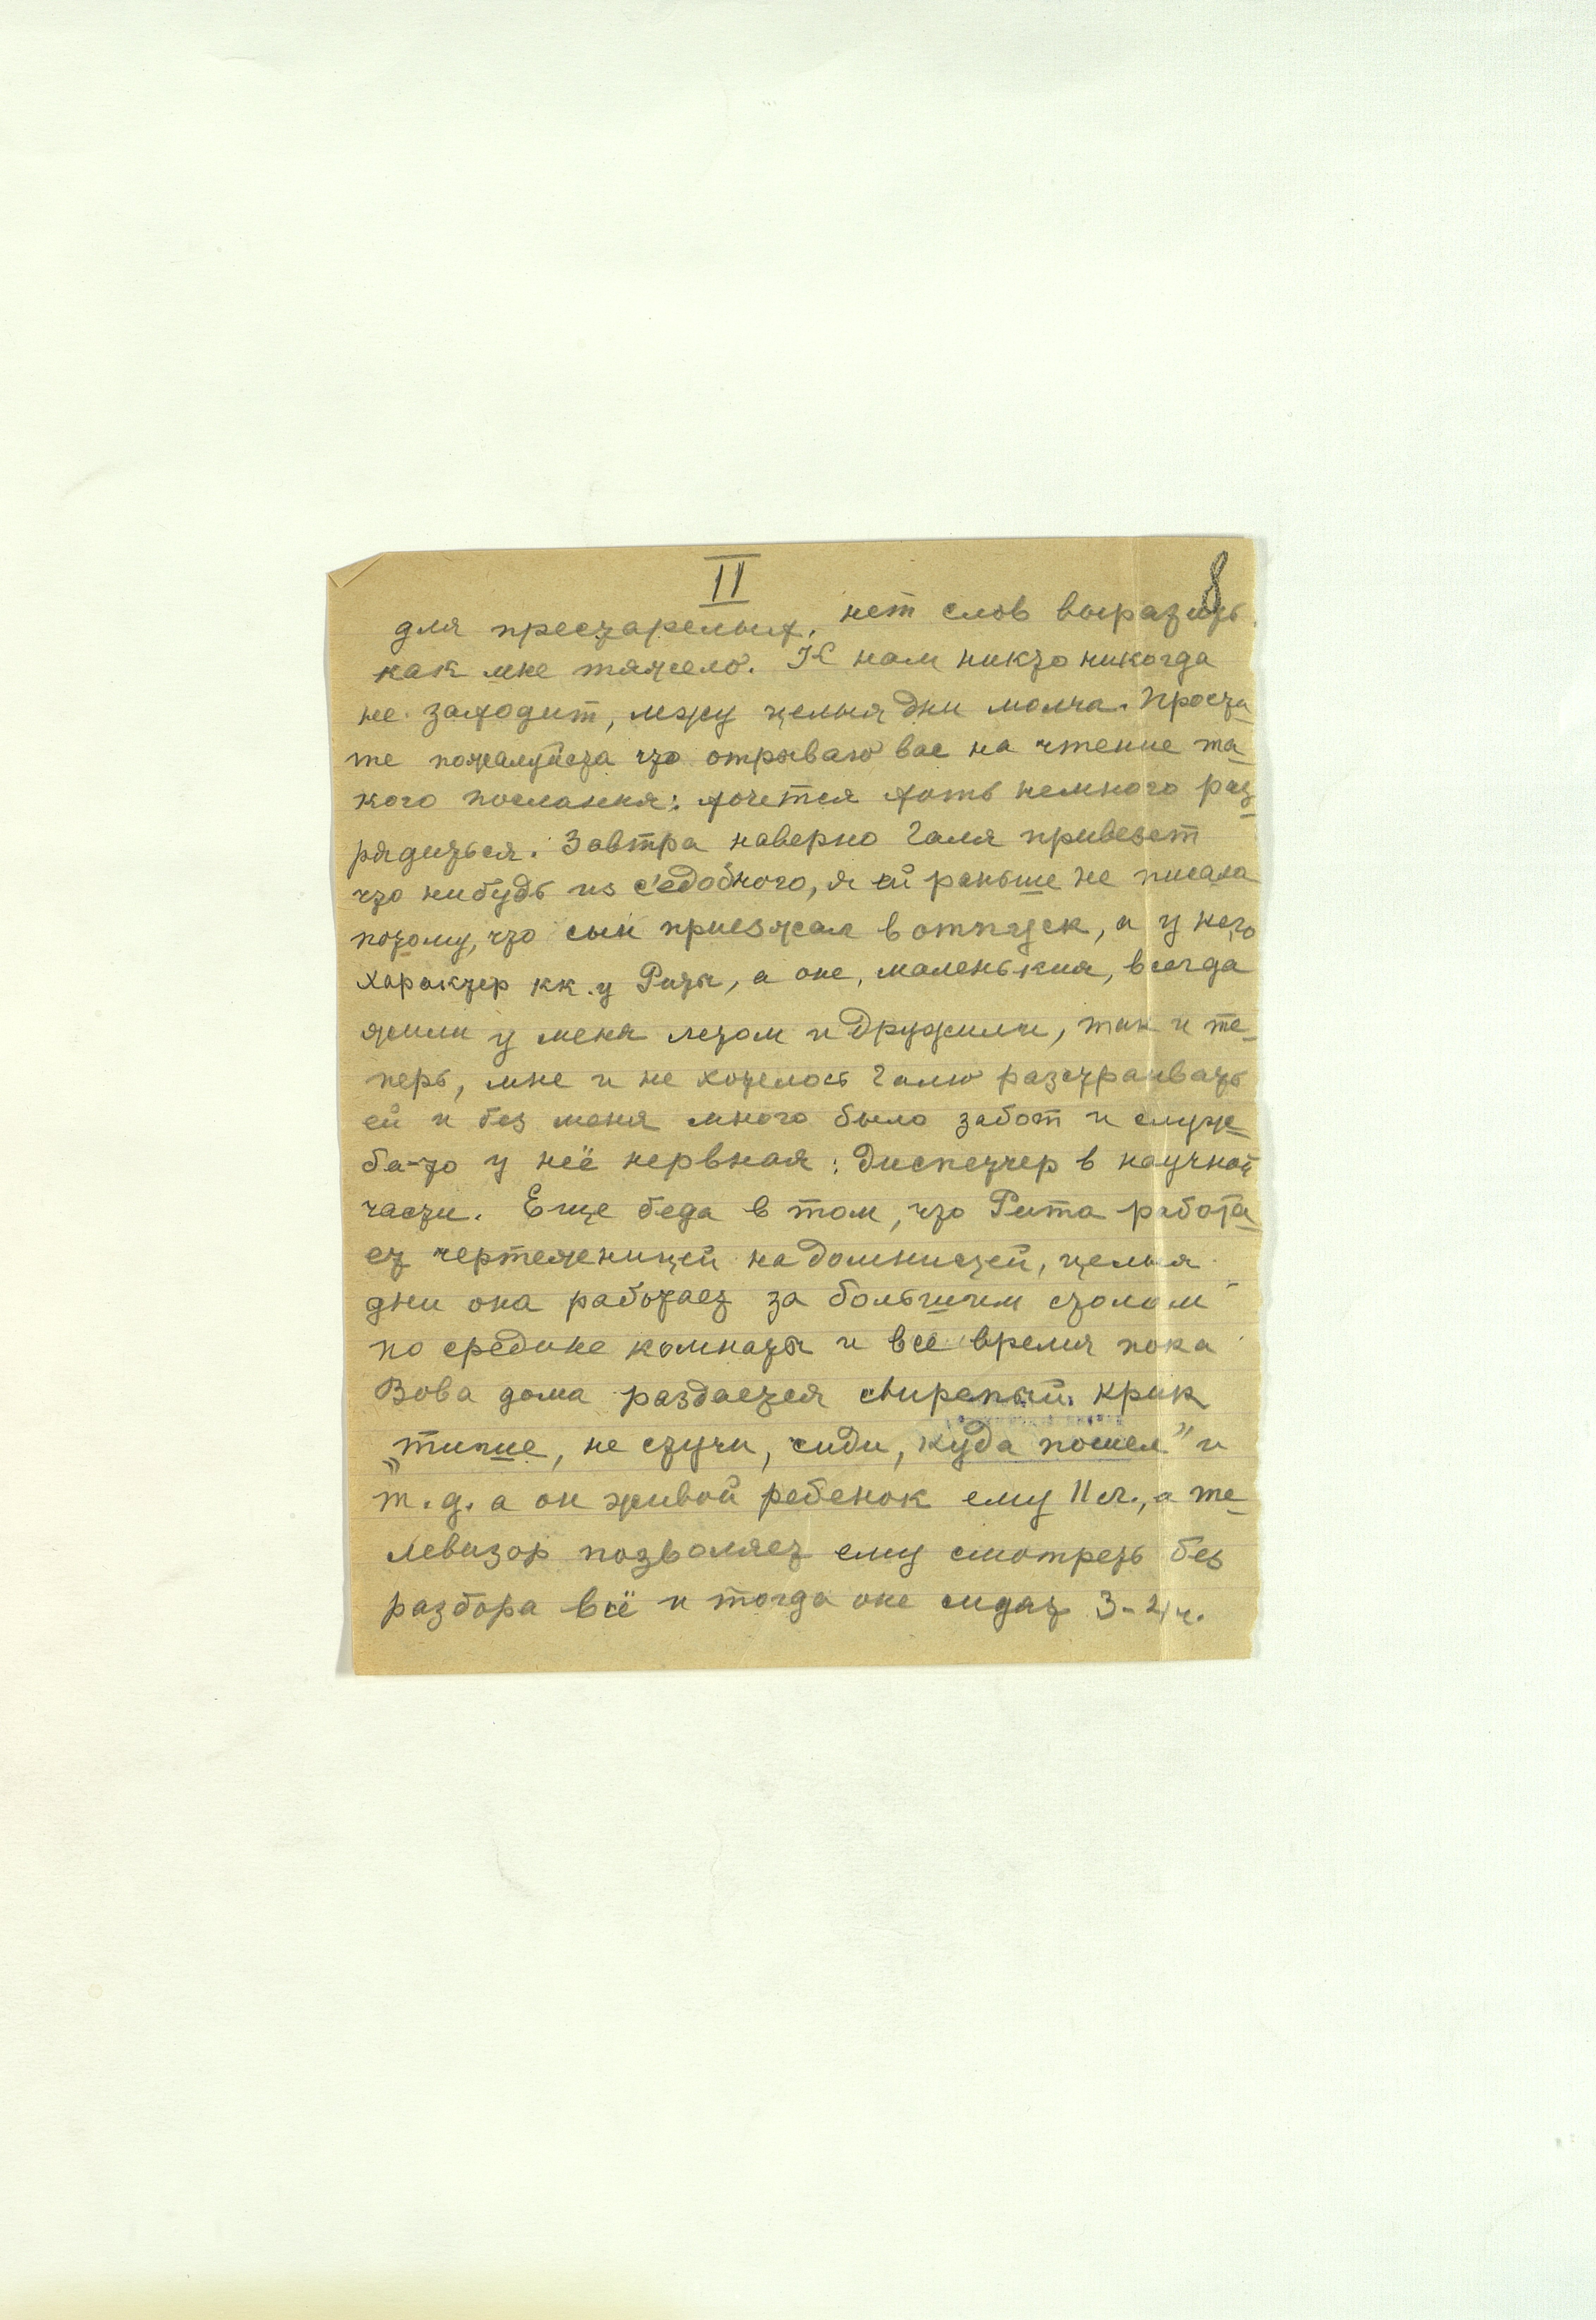 II
8
для престарелых, нет слов выразить
как мне тяжело. К нам никто никогда
не заходит, лежу целыя дни молча. Прости-
те пожалуйста что отрываю вас на чтение та-
кого послания: хочется хоть немного раз-
рядиться. Завтра наверно Галя привезет
что нибудь из с'едобного, я ей раньше не писала
потому, что сын приезжал в отпуск, а у него
характер кк. у Риты, а оне, маленькия, всегда
жили у меня летом и дружили, так и те-
перь, мне и не хотелось Галю разстраивать
ей и без меня много было забот и служ-
ба-то у неё нервная: диспетчер в научной
части. Еще беда в том, что Рита работа-
ет чертежницей надомницей, целыя
дни она работает за большим столом
по средине комнаты и все время пока
Вова дома раздается свирепый крик
„тише, не стучи, сиди, куда пошел" и
т.д. а он живой ребенок ему 11 л., а те-
левизор позволяет ему смотреть без
разбора всё и тогда оне сидят 3-4 ч.